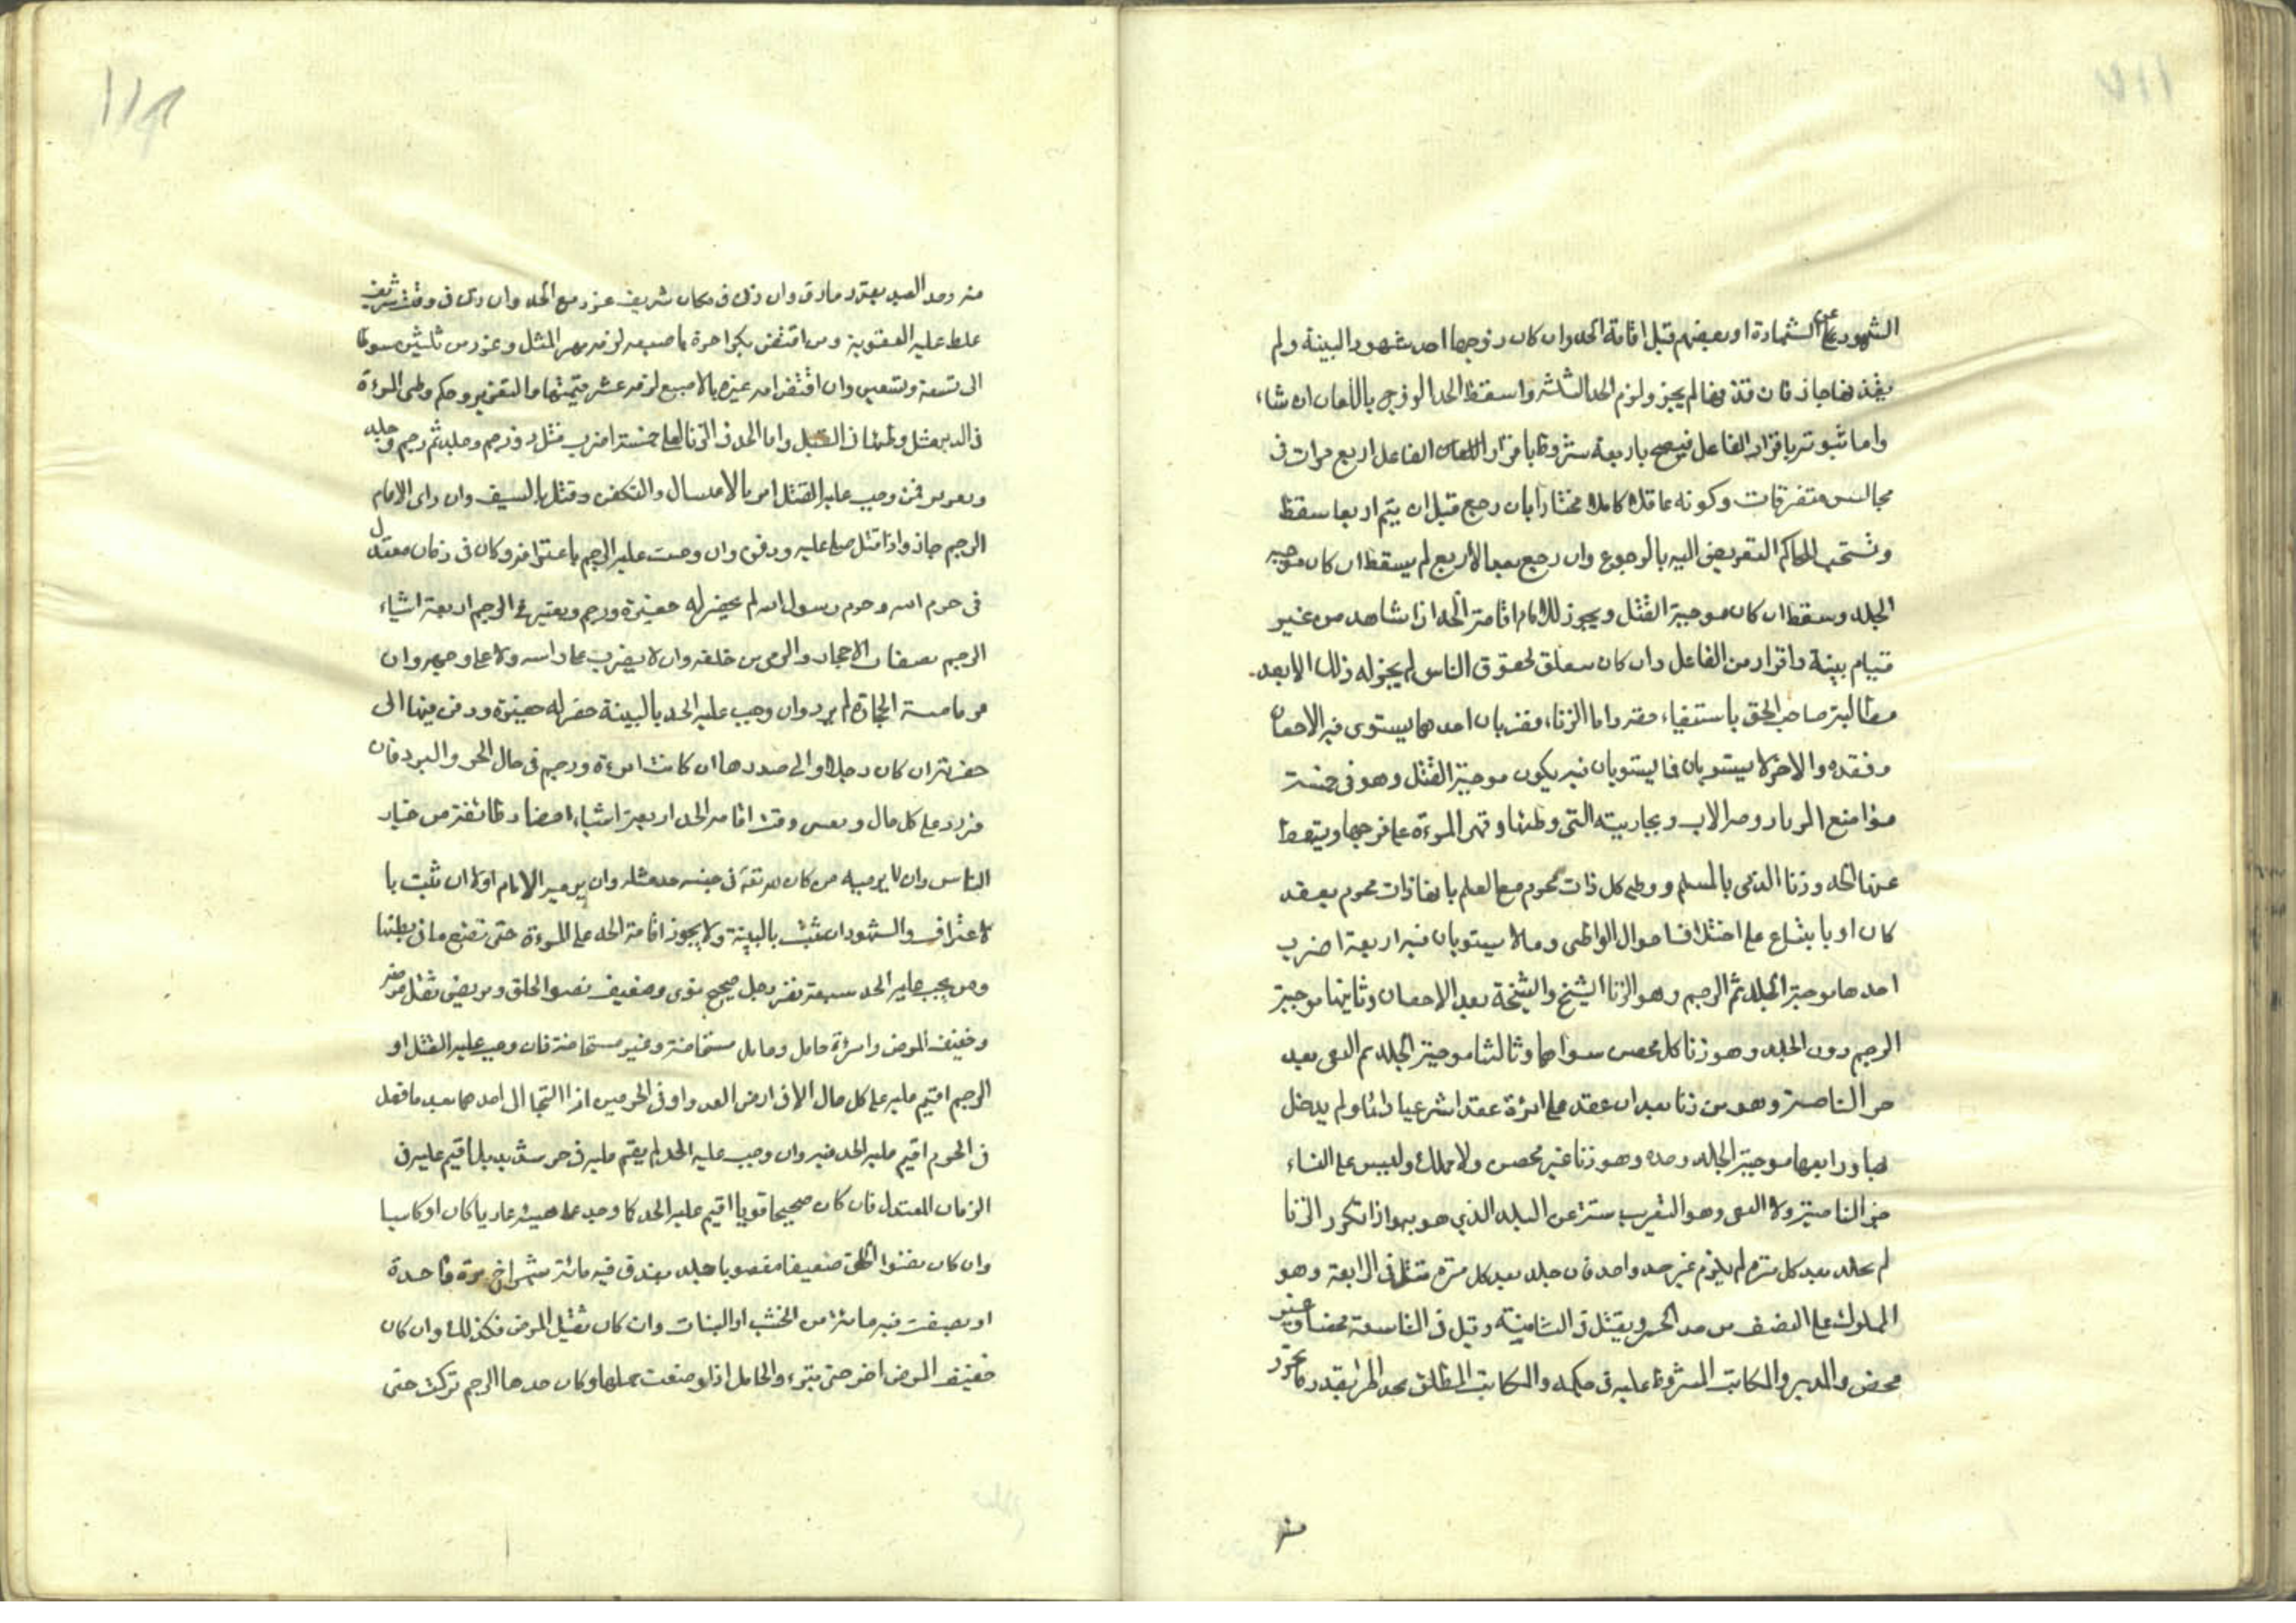 الشهود عن الشهادة او بعضهم قبل اقامة الحد وان كان زوجها احد شهود البينة ولم
يقذفها جاز فان قذفها لم يجز ولزم الحد الثلثة واسقط الحد الزوج باللعان ان شاء
واما ثبوته باقرار الفاعل فيصح باربعة شروط باقرار الفاعل اربع مرات في
مجالس متفرقات وكونه عاقلا كاملا مختارا بان رجع قبل ان يتم اربعا سقط
وتستحب للحاكم التعريض اليه بالرجوع وان رجع بعد الاربع لم يسقط ان كان موجبه
الجلد وسقط ان كان موجبة القتل ويجوز للامام اقامة الحد اذا شاهد من غير
قيام بينة واقرار من الفاعل وان كان متعلق لحقوق الناس لم يجز له ذلك الا بعد
مطالبة صاحب الحق باستيفاء حقه واما الزناء فضربان احدهما يستوى فيه الاحصان
وفقده والاخر لا يستويان فما يستويان فيه يكون موجبة القتل وهو في خمسة
مواضع بامرأة الاب وبجاريته التي وطئها وقهر المرءة على فرجها ويسقط
عنها الحد وزنا الذمى بالمسلم ووطى كل ذات محرم مع العلم بانها ذات محرم بعقد
كان او بابتياع على اختلاف احوال الواطى وما لا يستويان فيه اربعة اضرب
احدها موجبة الجلد ثم الرجم وهو الزنا الشيخ والشيخة بعد الاحصان وثانيها موجبة
الرجم دون الجلد وهو زنا كل محصن سواهما وثالثها موجبة الجلد ثم النفى بعد
جز الناصية وهو من زنا بعد ان عقد على امرءة عقدا شرعيا دائما ولم يدخل
بها ورابعها موجبة الجلد وحده وهو زنا غير محصن ولا مملك وليس على النساء
جز الناصية ولا النفى وهو التغريب سنة عن البلد الذي هو بها واذا تكرر الزنا
لم يجلد بعد كل مرة لم يلزم غير حد واحد فان جلد بعد كل مرة قتل في الرابعة وهو
المملوك على النصف من حد الحر ويقتل في الثامنة وقيل في التاسعة محصنا وغير
محصن والمدبر والمكاتب المشروط عليه في حكمه والمكاتب المطلق يحد الحر بقدر ما تحرر
منه
منه وحد العبد بقدر ما رق وان زنى في مكان شريف عزر مع الحد وان زنى في وقت شريف
غلظ عليه العقوبة ومن اقتض بكرا حرة باصبعه لزمه مهر المثل وعزر من ثلثين سوطا
الى تسعة وتسعين وان اقتض امة غيره بالاصبع لزمه عشر قيمتها والتعزير وحكم وطى المرءة
في الدبر مثل وطئها في القبل واما الحد في الزنا فعلى خمسة اضرب قتل ورجم وجلد ثم رجم وجلد
وتعزير فمن وجب عليه القتل امر بالاغتسال والتكفن وقتل بالسيف وان راى الامام
الرجم جاز واذا قتل صلى عليه ودفن وان وجبت عليه الرجم باعترافه وكان في زمان معتدل
في حرم الله وحرم رسول الله لم يحفر له حفيرة ورجم ويعتبر في الرجم اربعة اشياء
الرجم بصغار الاحجار والرمى من خلفه وان لا يضرب على راسه ولا على وجهه وان
فر ما مسته الحجارة لم يرد وان وجب عليه الحد بالبينة حفر له حفيرة ودفن فيها الى
حقوته ان كان رجلا والى صدرها ان كانت امرءة ورجم في حال الحر والبرد فان
فر رد على كل حال ويعتبر وقت اقامة الحد اربعة اشياء احضار طائفة من خيار
الناس وان لا يرميه من كان لله تعا في جنبه حد مثله وان يرميه الامام اولا ان ثبت با
لاعتراف والشهود ان ثبت بالبينة ولا يجوز اقامة الحد على المرءة حتى تضع ما في بطنها
ومن يجب عليه الحد سبعة نفر رجل صحيح قوى وضعيف نضو الخلق ومريض ثقل مرضه
وخفيف المرض وامرءة حامل وحايل مستحاضة وغير مستحاضة فان وجب عليه القتل او
الرجم اقيم عليه على كل حال الا في ارض العدو او في الحرمين اذا التجا الى احدهما بعد ما فعل
في الحرم اقيم عليه الحد فيه وان وجب عليه الحد لم يقم عليه في حر شديد بل اقيم عليه في
الزمان المعتدل فان كان صحيحا قويا اقيم عليه الحد كما وجد على هيئته عاريا كان او كاسيا
وان كان نضو الخلق ضعيفا جلد بعذق فيه مائة شمراخ مرة واحدة
او بضغث فيه مائة من الخشب او النبات وان كان ثقيل المرض فكذلك وان كان
خفيف المرض اخر حتى يبرء والحامل اذا وضعت حملها وكان حدها الرجم تركت حتى